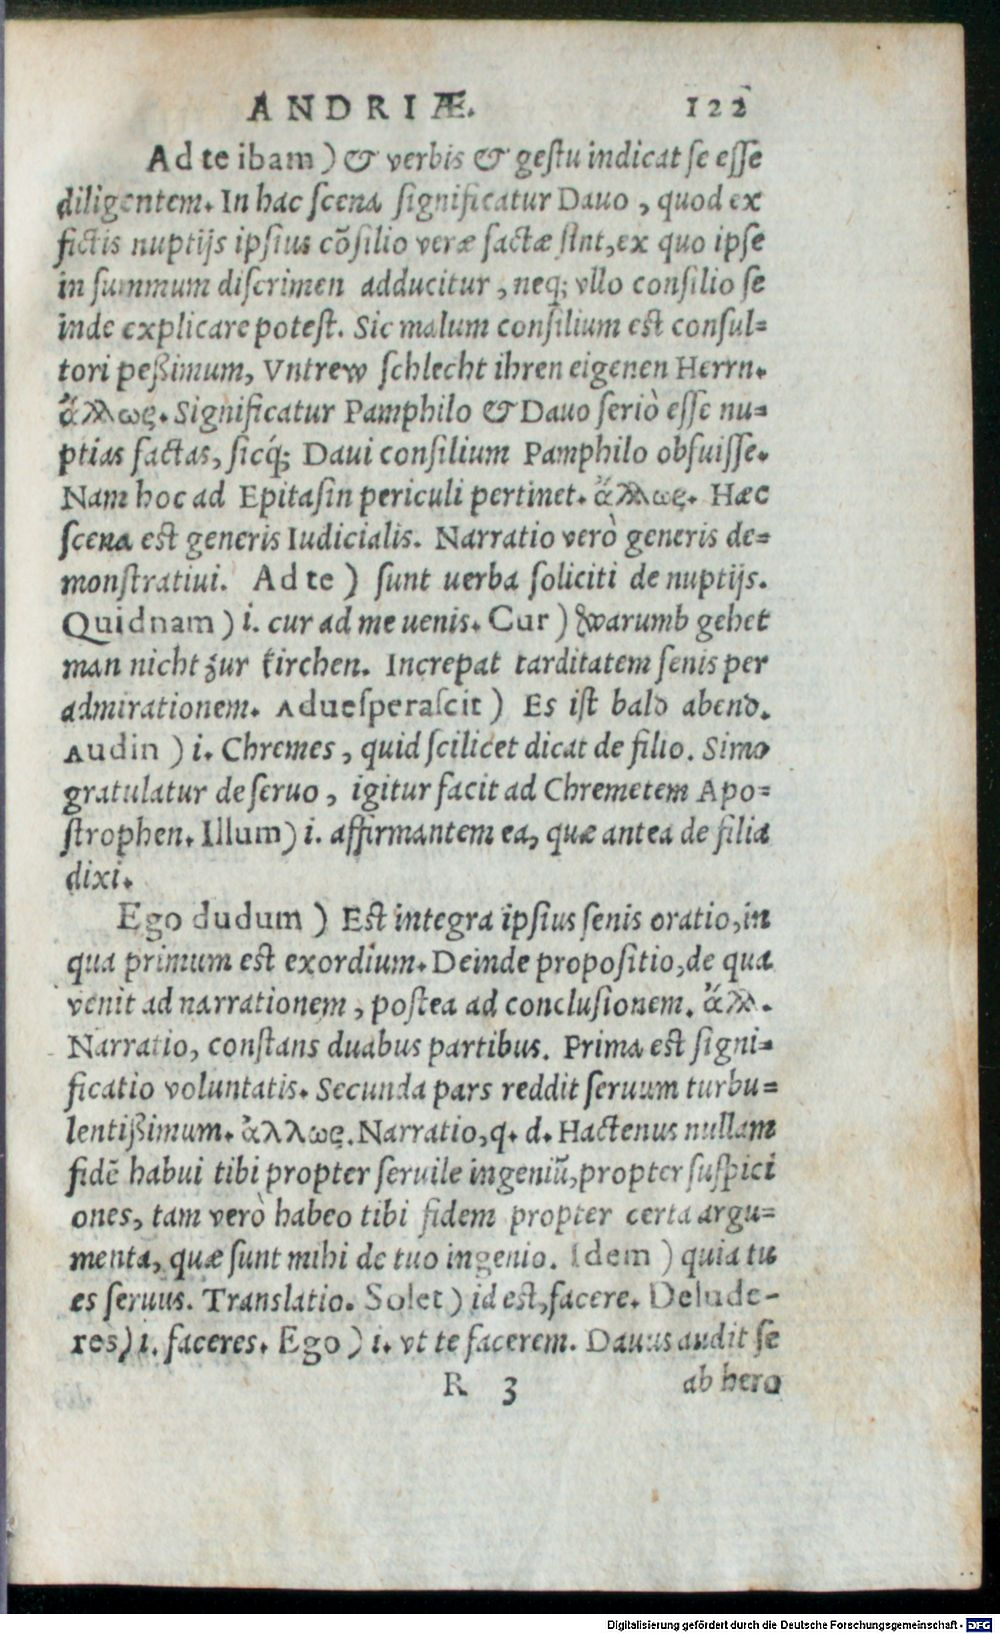 ANDRIÆ. 122
Ad te ibam) & verbis & gestu indicat se esse
diligentem. In hac scena significatur Dauo, quod ex
fictis nuptijs ipsius cõsilio veræ factæ sint, ex quo ipse
in summum discrimen adducitur, neq; vllo consilio se
inde explicare potest. Sic malum consilium est consul=
tori peßimum, Vntrew schlecht ihren eigenen Herrn.
ἄλλως. Significatur Pamphilo & Dauo seriò esse nu=
ptias factas, sicq́; Daui consilium Pamphilo obfuisse.
Nam hoc ad Epitasin periculi pertinet. ἄλλως. Hæc
scena est generis Iudicialis. Narratio verò generis de=
monstratiui. Ad te) sunt uerba soliciti de nuptijs.
Quidnam) i. cur ad me uenis. Cur) warumb gehet
man nicht zur kirchen. Increpat tarditatem senis per
admirationem. Aduesperascit) Es ist bald abend.
Audin) i. Chremes, quid scilicet dicat de filio. Simo
gratulatur de seruo, igitur facit ad Chremetem Apo=
strophen. Illum) i. affirmantem ea, quæ antea de filia
dixi.
Ego dudum) Est integra ipsius senis oratio, in
qua primum est exordium. Deinde propositio, de qua
venit ad narrationem, postea ad conclusionem. ἄλλ.
Narratio, constans duabus partibus. Prima est signi=
ficatio voluntatis. Secunda pars reddit seruum turbu=
lentißimum. ἄλλως. Narratio, q. d. Hactenus nullam
fidẽ habui tibi propter seruile ingeniũ, propter suspici
ones, tam verò habeo tibi fidem propter certa argu=
menta, quæ sunt mihi de tuo ingenio. Idem) quia tu
es seruus. Translatio. Solet) id est, facere. Delude-
res) i. faceres. Ego) i. vt te facerem. Dauus audit se
R 3 ab hero
Digitalisierung gefördert durch die Deutsche Forschungsgemeinschaft - DFG